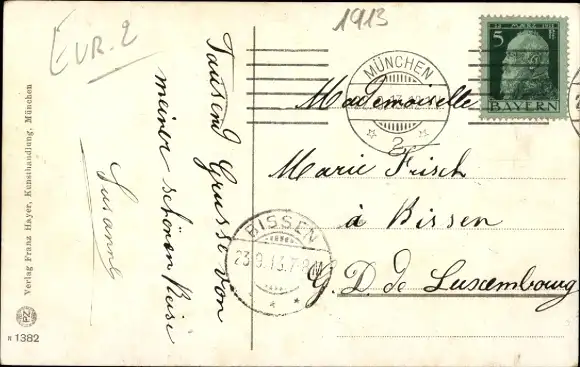 EUR. 2
1913
Tausend Grüsse von
meiner schönen Reise
Susanne
12. MÄRZ 1911
5
BAYERN
MÜNCHEN
2
Mademoiselle
Marie Frisch
à Bissen
G. D. de Luxembourg
BISSEN
23.9.13.7-8
Verlag Franz Hayer, Kunsthandlung, München
PZ
1382